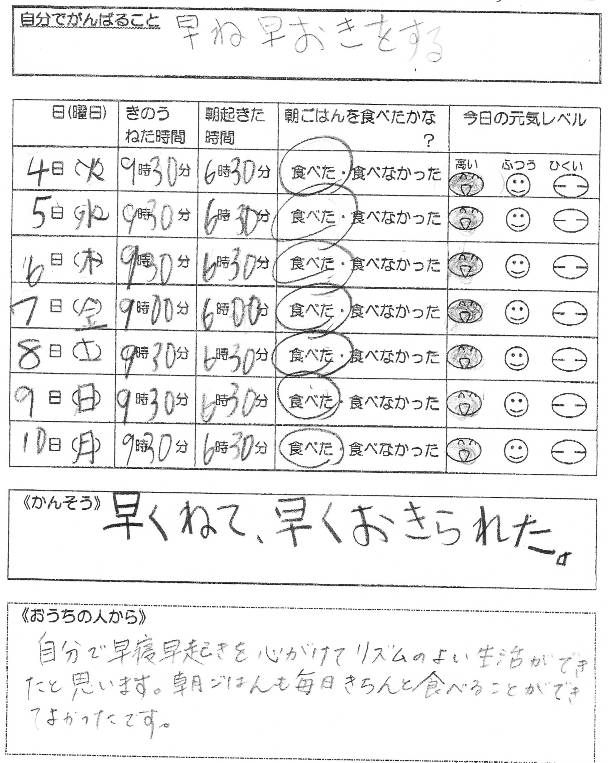 自分でがんばること
早ね早おきをする
日(曜日) きのうねた時間 朝起きた時間 朝ごはんを食べたかな？ 今日の元気レベル
高い ふつう ひくい
4日(火) 9時30分 6時30分 食べた・食べなかった
5日(水) 9時30分 6時30分 食べた・食べなかった
6日(木) 9時30分 6時30分 食べた・食べなかった
7日(金) 9時00分 6時00分 食べた・食べなかった
8日(土) 9時30分 6時30分 食べた・食べなかった
9日(日) 9時30分 6時30分 食べた・食べなかった
10日(月) 9時30分 6時30分 食べた・食べなかった
《かんそう》
早くねて、早くおきられた。
《おうちの人から》
自分で早寝早起きを心がけてリズムのよい生活ができ
たと思います。朝ごはんも毎日きちんと食べることができ
てよかったです。